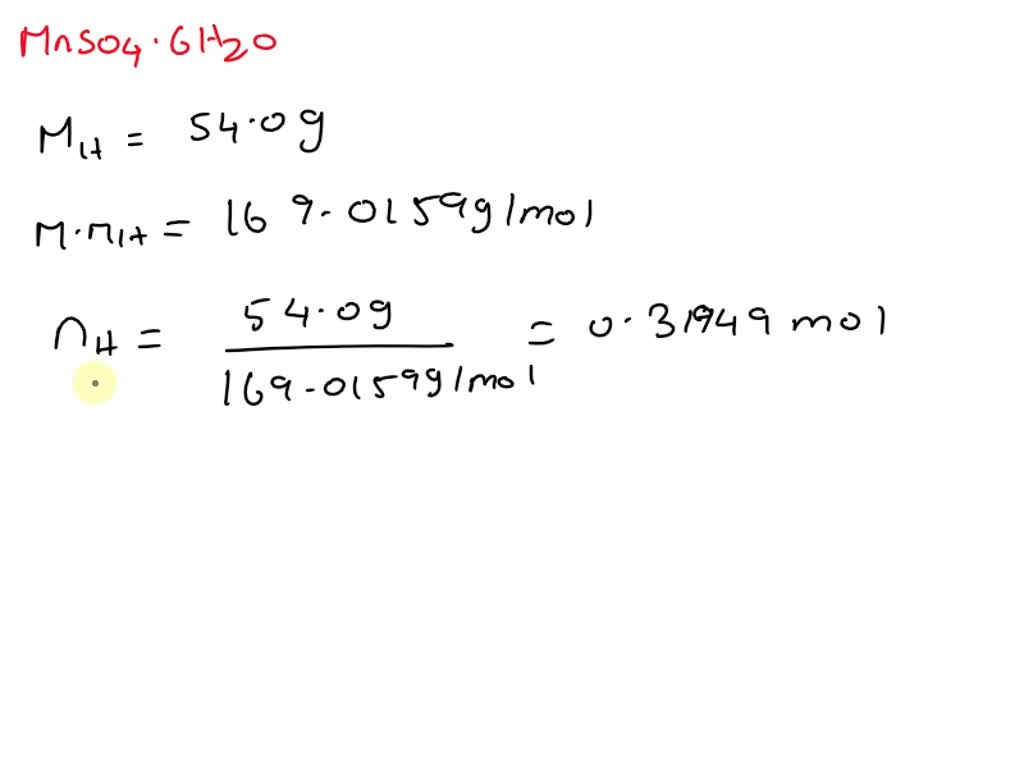 MnSO4·6H2O
MH = 54.0g
M.MH = 169.0159g/mol
nH = 54.0g / 169.0159g/mol = 0.31949 mol